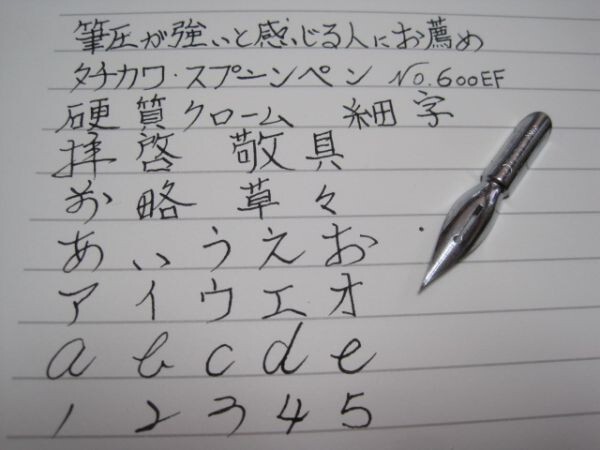 筆圧が強いと感じる人にお薦め
タチカワ・スプーンペン No.600EF
硬質クローム 細字
拝啓 敬具
前略 草々
あいうえお
アイウエオ
a b c d e
1 2 3 4 5